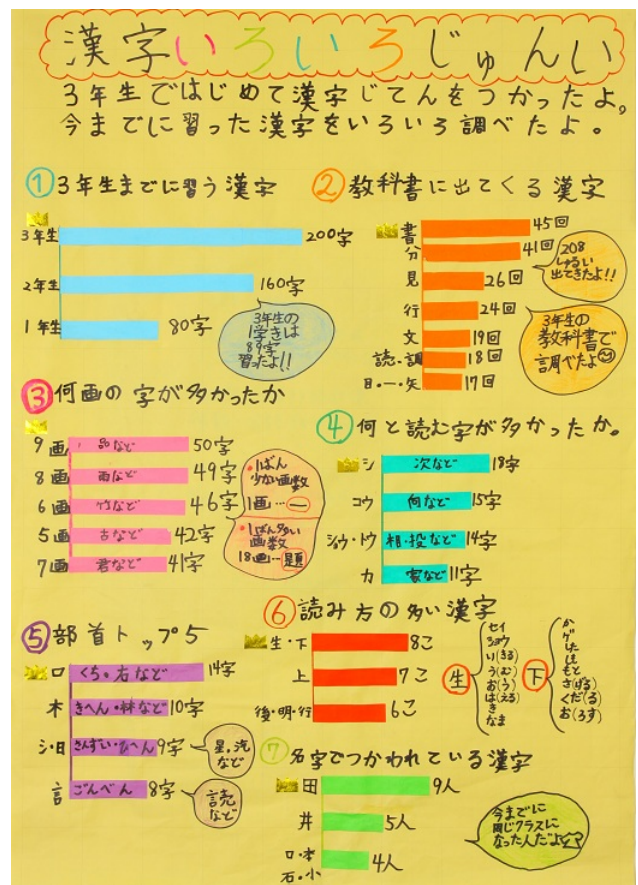 漢字いろいろじゅんい
3年生ではじめて漢字じてんをつかったよ。
今までに習った漢字をいろいろ調べたよ。
①3年生までに習う漢字
3年生 200字
2年生 160字
1年生 80字
3年生の
1学きは
89字
習ったよ!!
②教科書に出てくる漢字
書 45回
分 41回
見 26回
行 24回
文 19回
読・調 18回
日・一・矢 17回
208
しゅるい
出てきたよ!!
3年生の
教科書で
調べたよ
③何画の字が多かったか
9画 品など 50字
8画 雨など 49字
6画 竹など 46字
5画 古など 42字
7画 君など 41字
・1ばん
少ない画数
1画…一
・1ばん多い
画数
18画…題
④何と読む字が多かったか。
シ 次など 18字
コウ 向など 15字
ショウ・トウ 相・投など 14字
カ 家など 11字
⑤部首トップ5
口 くち・右など 14字
木 きへん・林など 10字
氵・日 さんずい・ひへん 9字
言 ごんべん 8字
星、汽
など
読
など
⑥読み方の多い漢字
生・下 8こ
上 7こ
後・明・行 6こ
生
セイ
ショウ
い(きる)
う(む)
お(う)
は(える)
き
なま
下
カ
ゲ
した
しも
もと
さ(げる)
くだ(る)
お(ろす)
⑦名字でつかわれている漢字
田 9人
井 5人
口・本
石・小 4人
今までに
同じクラスに
なった人だよ